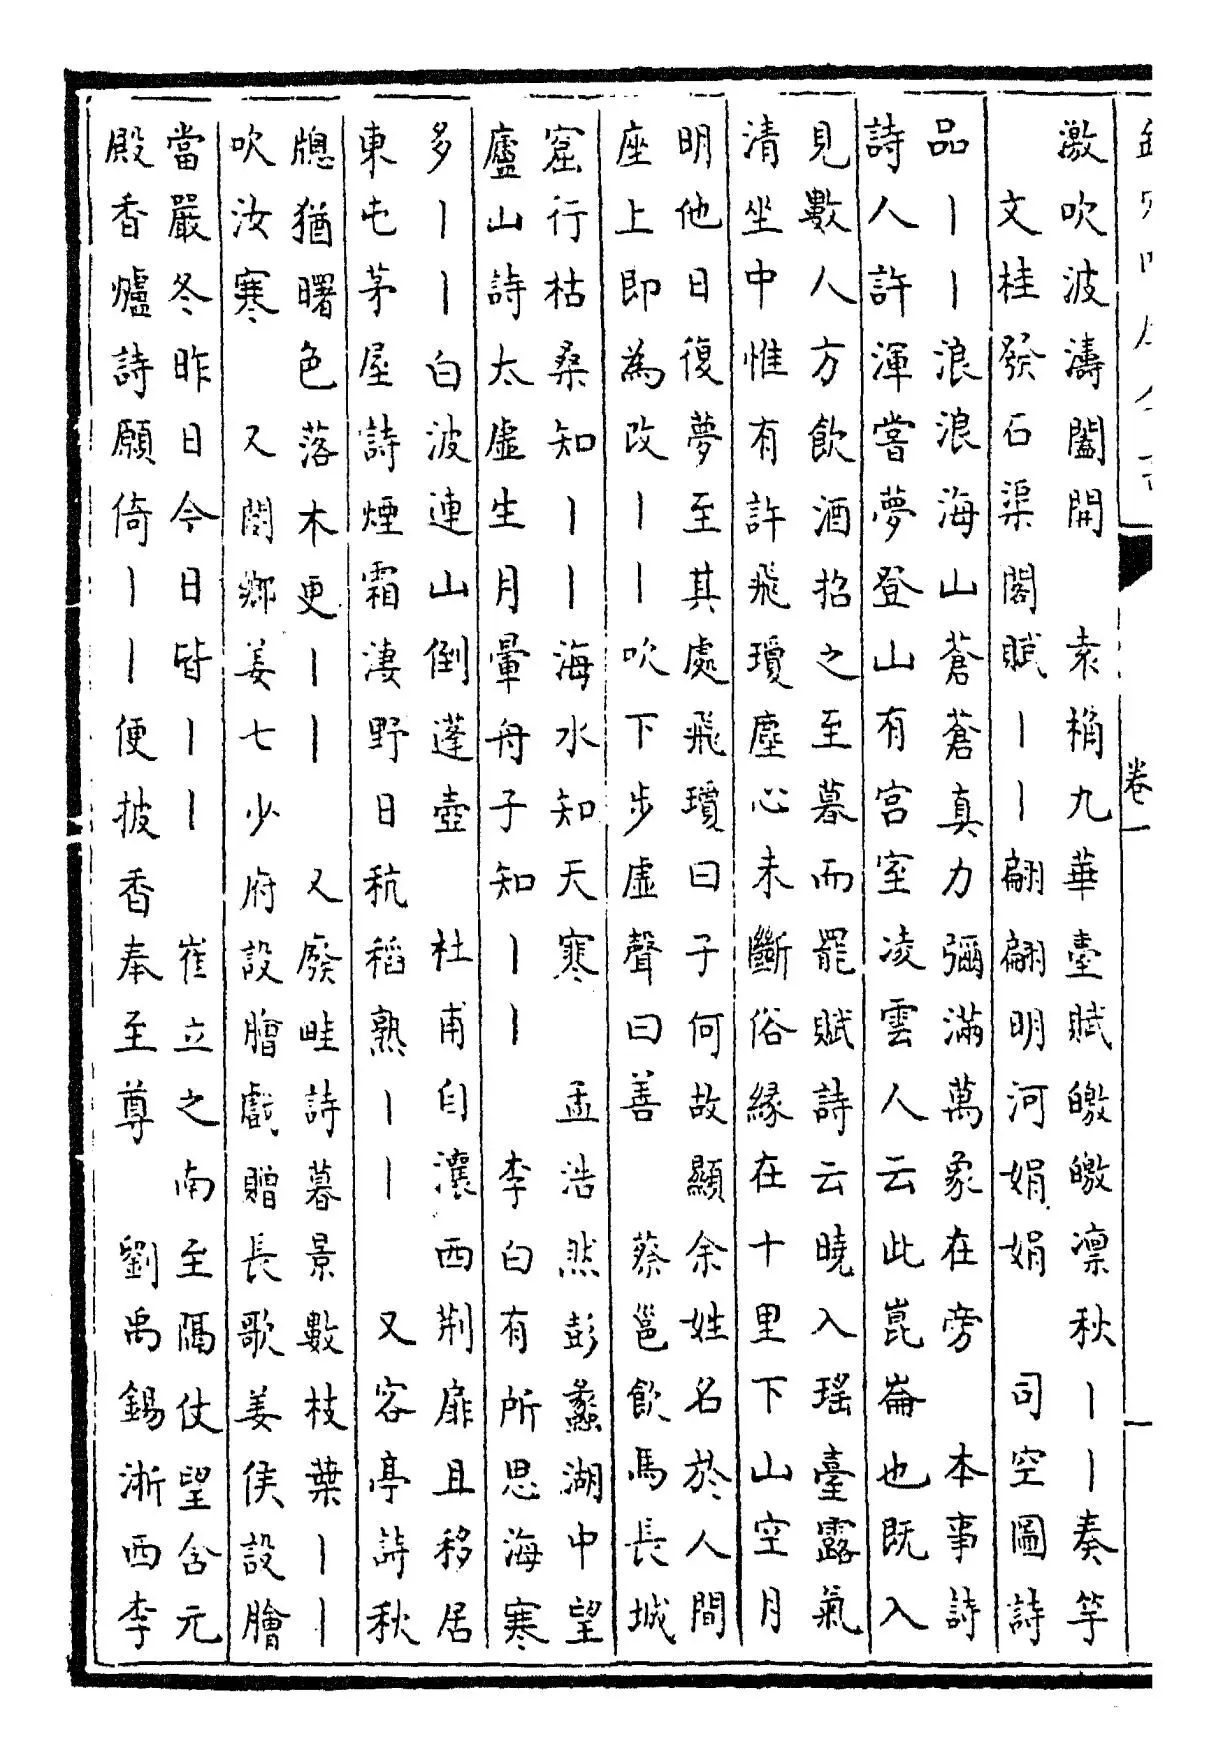 卷一
激吹波濤闔開　袁桷九華臺賦皦皦凛秋丨丨奏竽
文桂發石渠閣賦丨丨翩翩明河娟娟　司空圖詩
品丨丨浪浪海山蒼蒼真力彌滿萬象在旁　本事詩
詩人許渾嘗夢登山有宫室凌雲人云此崑崙也既入
見數人方飲酒招之至暮而罷賦詩云曉入瑤臺露氣
清坐中惟有許飛瓊塵心未斷俗緣在十里下山空月
明他日復夢至其處飛瓊曰子何故顯余姓名於人間
座上即為改丨丨吹下步虛聲曰善　蔡邕飲馬長城
窟行枯桑知丨丨海水知天寒　孟浩然彭蠡湖中望
廬山詩太虛生月暈舟子知丨丨　李白有所思海寒
多丨丨白波連山倒蓬壺　杜甫自瀼西荆扉且移居
東屯茅屋詩煙霜淒野日秔稻熟丨丨　又客亭詩秋
牕猶曙色落木更丨丨　又廢畦詩暮景數枝葉丨丨
吹汝寒　又閿鄉姜七少府設膾戲贈長歌姜侯設膾
當嚴冬昨日今日皆丨丨　崔立之南至隔仗望含元
殿香爐詩願倚丨丨便披香奉至尊　劉禹錫淅西李